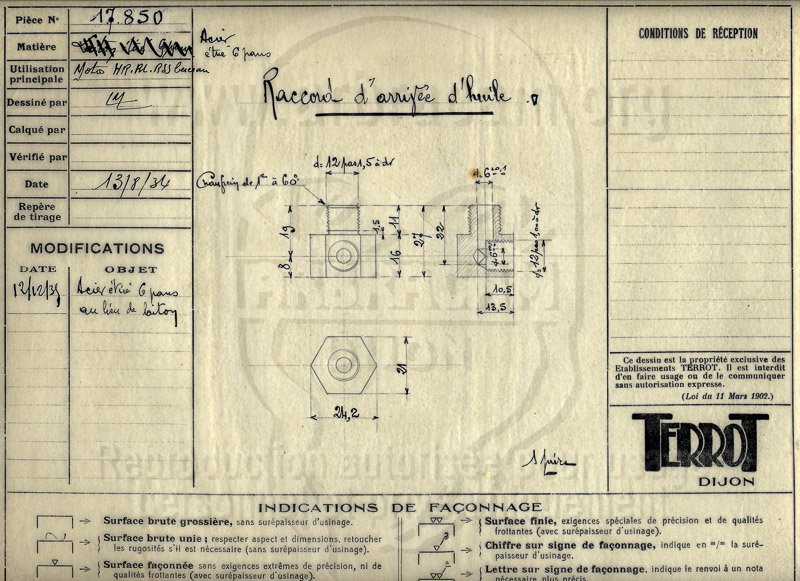 Pièce N° 17.850
Matière
Acier
étiré 6 pans
Utilisation
principale
Moto HR.RL.RSS
Dessiné par
Calqué par
Vérifié par
Date 13/8/34
Repère
de tirage
MODIFICATIONS
DATE OBJET
12/12/35 Acier étiré 6 pans
au lieu de laiton
Raccord d'arrivée d'huile
d= 12 pas 1,5 à dr
Chanfrein de 1mm à 60°
19
8
1,5
11
16
27
22
4.6 +0,1
10,5
13,5
21
24,2
1 pièce
CONDITIONS DE RÉCEPTION
Ce dessin est la propriété exclusive des
Etablissements TERROT. Il est interdit
d'en faire usage ou de le communiquer
sans autorisation expresse.
(Loi du 11 Mars 1902.)
TERROT
DIJON
INDICATIONS DE FAÇONNAGE
Surface brute grossière, sans surépaisseur d'usinage.
Surface brute unie ; respecter aspect et dimensions, retoucher
les rugosités s'il est nécessaire (sans surépaisseur d'usinage).
Surface façonnée sans exigences extrêmes de précision, ni de
qualités frottantes (avec surépaisseur d'usinage).
Surface finie, exigences spéciales de précision et de qualités
frottantes (avec surépaisseur d'usinage).
Chiffre sur signe de façonnage, indique en m/m la suré-
paisseur d'usinage.
Lettre sur signe de façonnage, indique le renvoi à un nota
nécessaire plus précis.